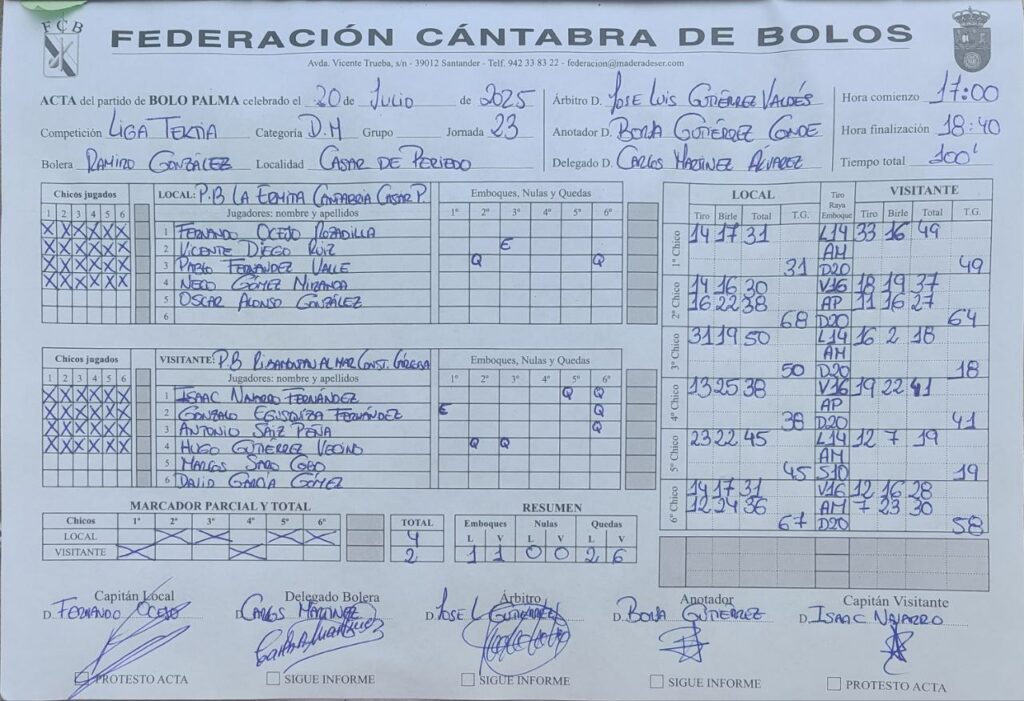 FCB
FEDERACIÓN CÁNTABRA DE BOLOS
Avda. Vicente Trueba, s/n - 39012 Santander - Telf. 942 33 83 22 - federacion@maderadeser.com
ACTA del partido de BOLO PALMA celebrado el 20 de JULIO de 2025
Competición LIGA TERTIA Categoría D.H Grupo Jornada 23
Bolera RAMIRO GONZÁLEZ Localidad CASAR DE PERIEDO
Árbitro D. JOSE LUIS GUTIÉRREZ VALDÉS
Anotador D. BORJA GUTIÉRREZ CONDE
Delegado D. CARLOS MARTINEZ ÁLVAREZ
Hora comienzo 17:00
Hora finalización 18:40
Tiempo total 100'
Chicos jugados LOCAL: P.B LA ERMITA CANTABRIA CASAR P. Emboques, Nulas y Quedas
1 2 3 4 5 6 Jugadores: nombre y apellidos 1º 2º 3º 4º 5º 6º
X X X X X X 1 FERNANDO OCEJO ROZADILLA
X X X X X X 2 VICENTE DIEGO RUIZ E
X X X X X X 3 PABLO FERNANDEZ VALLE Q Q
X X X X X X 4 NECO GÓMEZ MIRANDA
5 OSCAR ALONSO GONZÁLEZ
6
Chicos jugados VISITANTE: P.B Emboques, Nulas y Quedas
1 2 3 4 5 6 Jugadores: nombre y apellidos 1º 2º 3º 4º 5º 6º
X X X X X X 1 ISAAC NAVARRO FERNÁNDEZ Q Q
X X X X X X 2 GONZALO EGUSQUIZA FERNÁNDEZ E Q
X X X X X X 3 ANTONIO SAIZ PEÑA Q
X X X X X X 4 HUGO GUTIÉRREZ VECINO Q Q
5 MARCOS SARO COBO
6 DAVID GARCÍA GÓMEZ
LOCAL Tiro Raya Emboque VISITANTE
Tiro Birle Total T.G. Tiro Birle Total T.G.
1º Chico 14 17 31 L14 33 16 49
AM
31 D20 49
2º Chico 14 16 30 V16 18 19 37
16 22 38 AP 11 16 27
68 D20 64
3º Chico 31 19 50 L14 16 2 18
AM
50 D20 18
4º Chico 13 25 38 V16 19 22 41
AP
38 D20 41
5º Chico 23 22 45 L14 12 7 19
AM
45 S10 19
6º Chico 14 17 31 V16 12 16 28
12 24 36 AM 7 23 30
67 D20 58
MARCADOR PARCIAL Y TOTAL
Chicos 1º 2º 3º 4º 5º 6º TOTAL
LOCAL X X X X 4
VISITANTE X X 2
RESUMEN
Emboques Nulas Quedas
L V L V L V
1 1 0 0 2 6
Capitán Local
D. FERNANDO OCEJO
PROTESTO ACTA
Delegado Bolera
D. CARLOS MARTINEZ
SIGUE INFORME
Árbitro
D. JOSE L GUTIERREZ
SIGUE INFORME
Anotador
D. BORJA GUTIERREZ
SIGUE INFORME
Capitán Visitante
D. ISAAC NAVARRO
PROTESTO ACTA